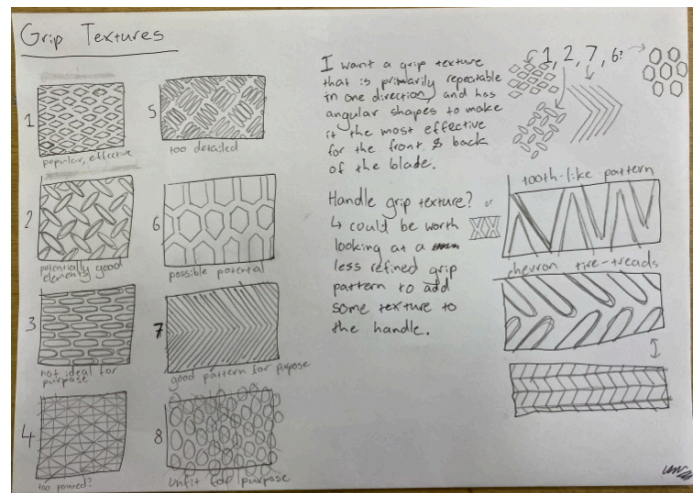 Grip Textures
1
popular, effective
2
potentially good
elements
3
not ideal for
purpose
4
too pointed?
5
too detailed
6
possible potential
7
good pattern for purpose
8
Unfit for purpose
I want a grip texture
that is primarily repeatable
in one direction, and has
angular shapes to make
it the most effective
for the front & back
of the blade.
1, 2, 7, 6?
Handle grip texture? or
↳ could be worth
looking at a
less refined grip
pattern to add
some texture to
the handle.
tooth-like pattern
chevron tire-treads